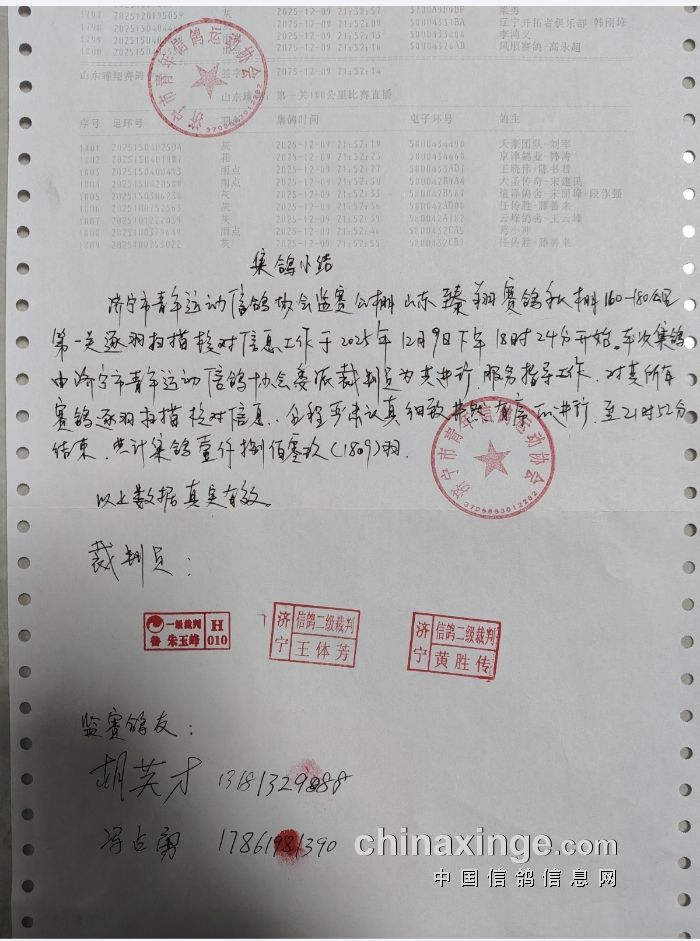 1797 2025120195059 灰 2025-12-09 21:5 5700A9F9BF 梁勇
2025-12-09 580044331BA 辽宁开拓者俱乐部-韩刚锋
1799 202515 2025-12-09 李鸿义
1800 20251 2025-12-09 5800A326AB 凤凰赛鸽-高永超
山东臻翔赛鸽 签字 2025-12-09 21:52:14
山东臻 第一关180公里比赛直播
序号 足环号 羽 集鸽时间 电子环号 鸽主
1801 2025150402504 灰 2025-12-09 21:52:19 天豪团队-刘军
1802 2025150401987 花 2025-12-09 21:52:19 京津鸽业-韩涛
1803 雨点 2025-12-09 王晓伟+陈书君
1804 2025150420508 雨点 2025-12-09 大圣传奇-宋建民
1805 灰 2025-12-09
1806 灰 2025-12-09 任传胜+滕善来
1807 灰 2025-12-09 云峰鸽舍-王云峰
1808 雨点 2025-12-09 葛小冲
1809 灰 2025-12-09 任传胜+滕善来
济宁市青年信鸽运动协会
3708883012282
集鸽小结
济宁市青年运动信鸽协会监赛公棚山东臻翔赛鸽公棚160-180公里
第一关逐羽扫描核对信息工作于2025年12月9日下午18时24分开始。本次集鸽
由济宁市青年运动信鸽协会委派裁判员为其进行.服务指导工作.对其所有
赛鸽逐羽扫描核对信息.全程严肃认真细致井然有序的进行.至21时52分
结束.共计集鸽壹仟捌佰零玖(1809)羽.
济宁市青年信鸽运动协会
3708883012282
以上数据真实有效。
裁判员:
一级裁判 H
鲁 朱玉峰 010
济宁 信鸽二级裁判 王体芳
济宁 信鸽二级裁判 黄胜传
监赛鸽友:
胡英才 13181329888
冯占勇 17861981390
chinaxinge.com
中国信鸽信息网